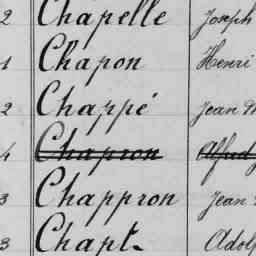 2 Chapelle Joseph
1 Chapon Henri
2 Chappé Jean
4 Chapron Alfred
3 Chappron Jean
3 Chapt Adol